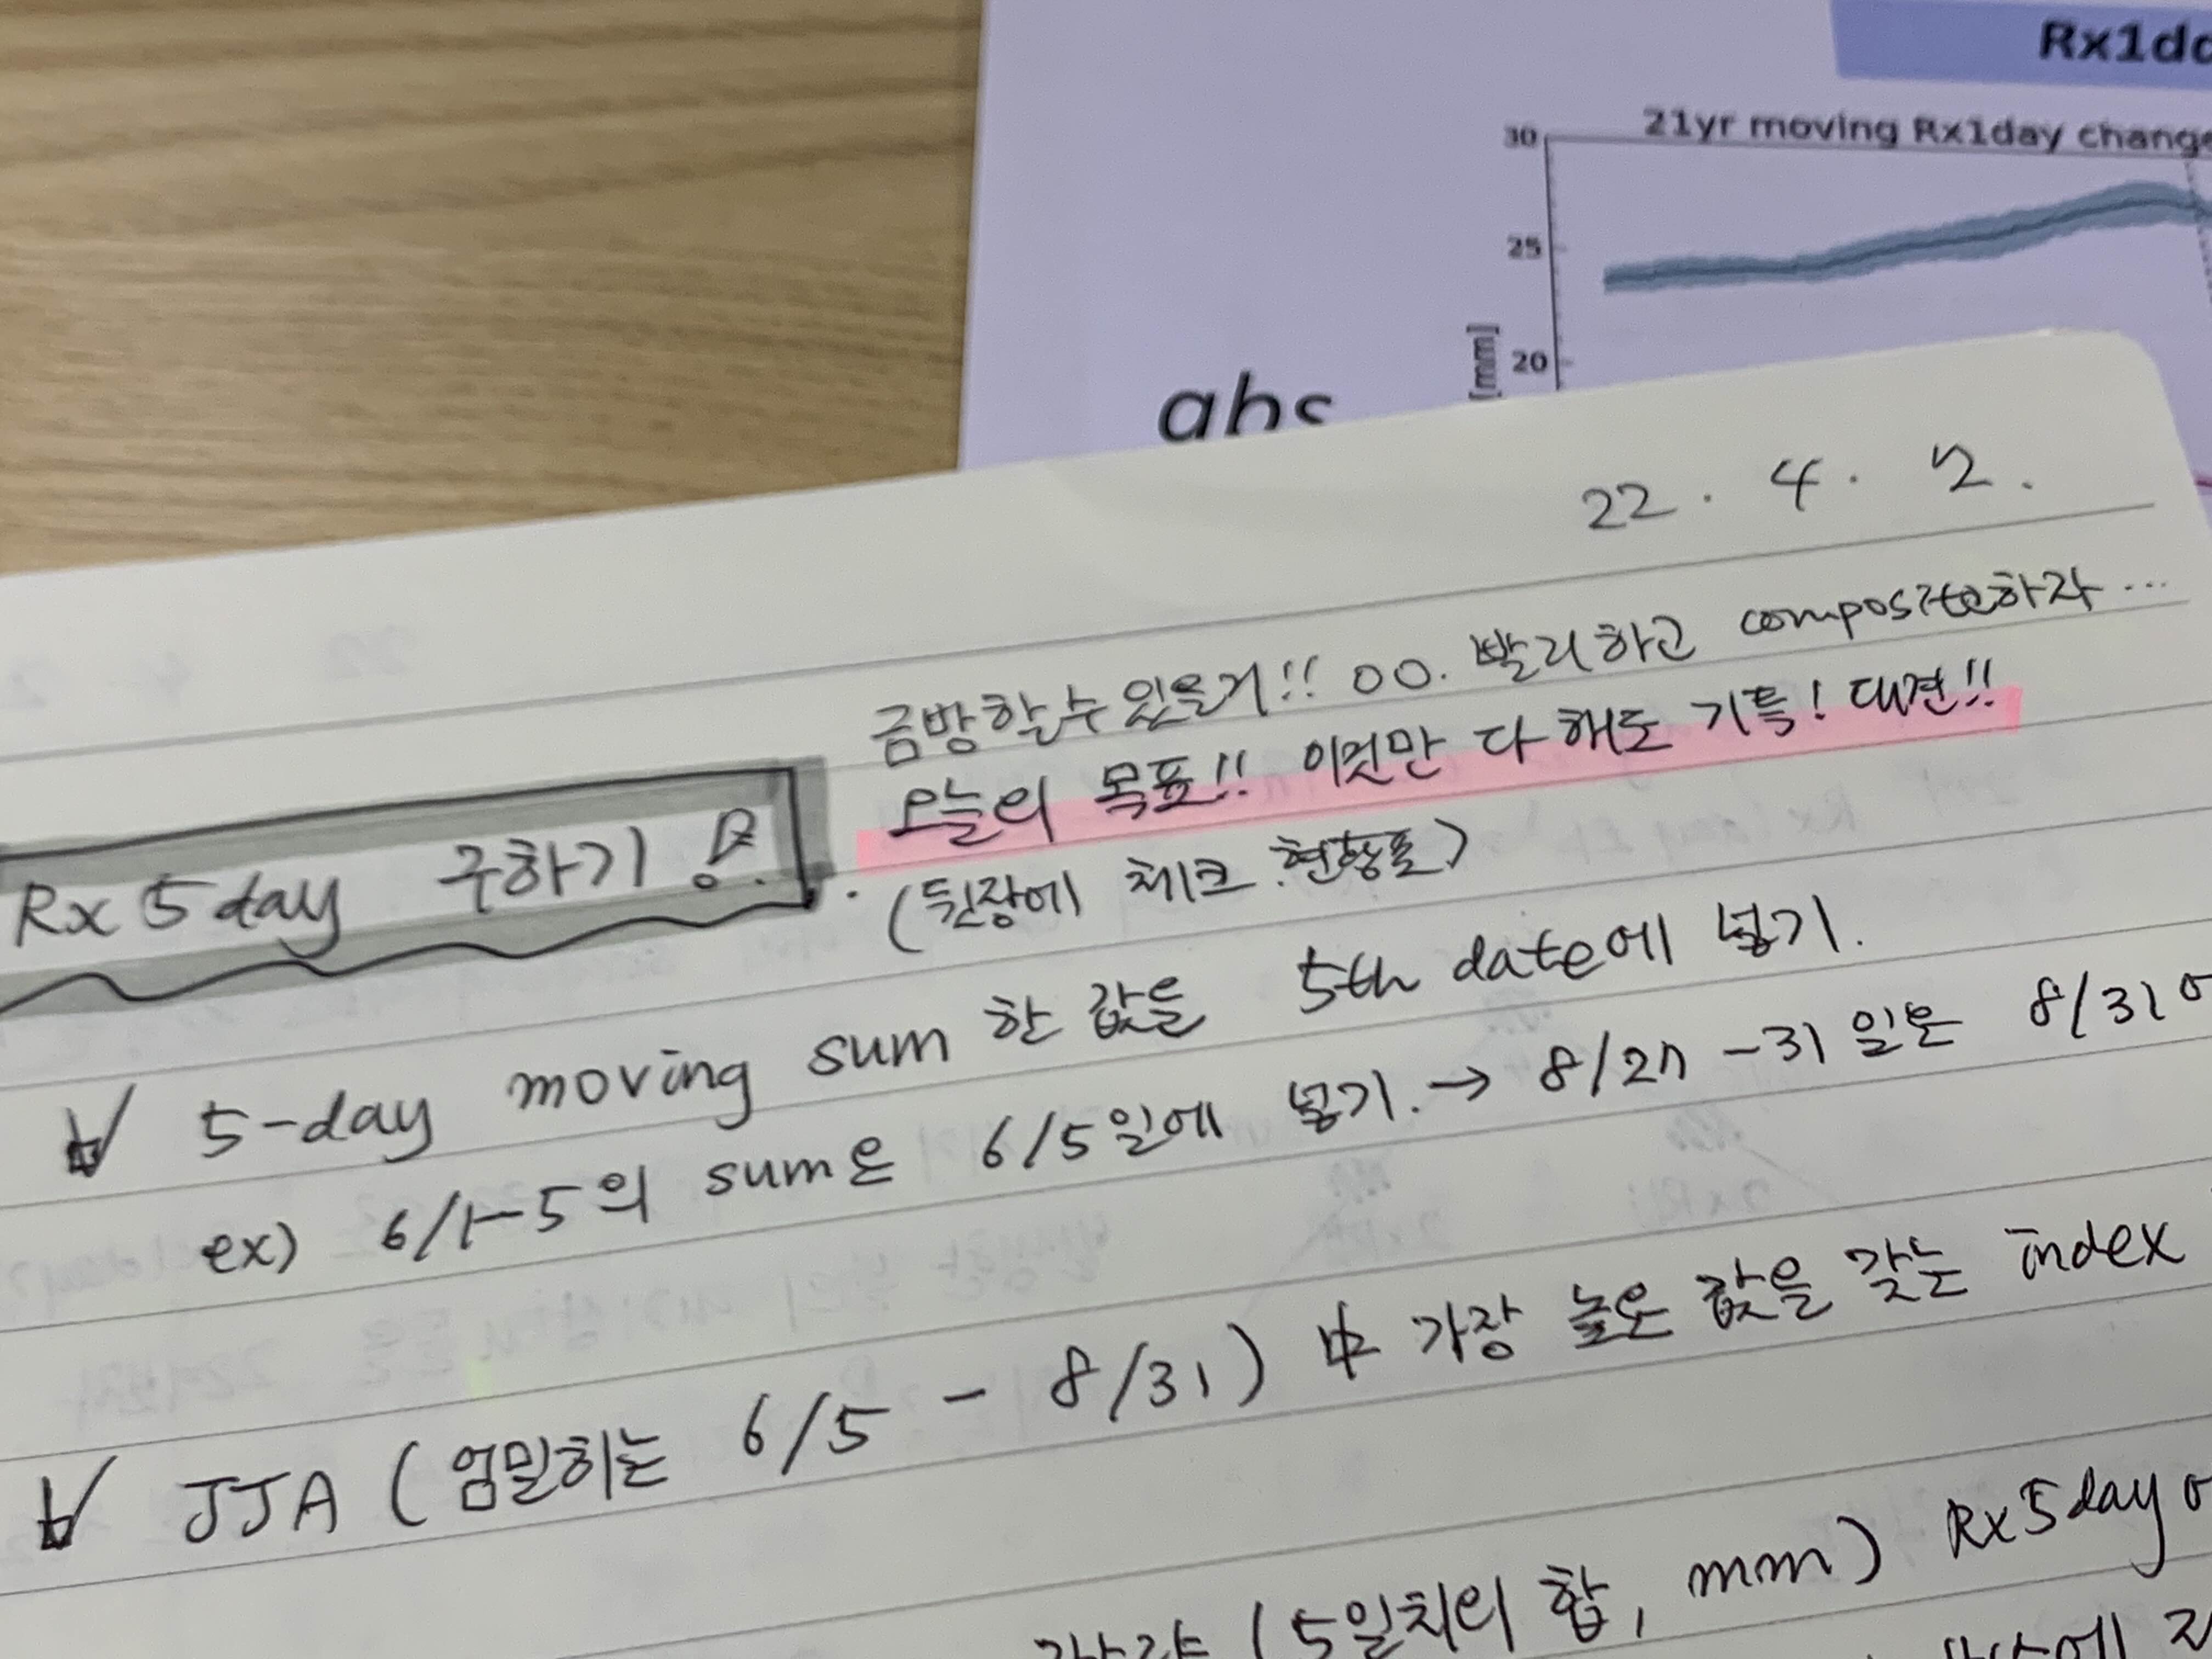 Rx1da
21yr moving Rx1day change
30
25
20
[mm]
abs
22 . 4 . 2 .
금방할수있을거!! 00. 빨리하고 composite하자...
오늘의 목표!! 이것만 다 해도 기특! 대견!!
Rx5day 구하기
(뒷장에 체크 현황표)
5-day moving sum 한 값을 5th date에 넣기.
ex) 6/1-5의 sum은 6/5일에 넣기. → 8/27-31일은 8/31에
JJA (엄밀히는 6/5 - 8/31) 中 가장 높은 값을 갖는 index
(5일치의 합, mm) Rx5day